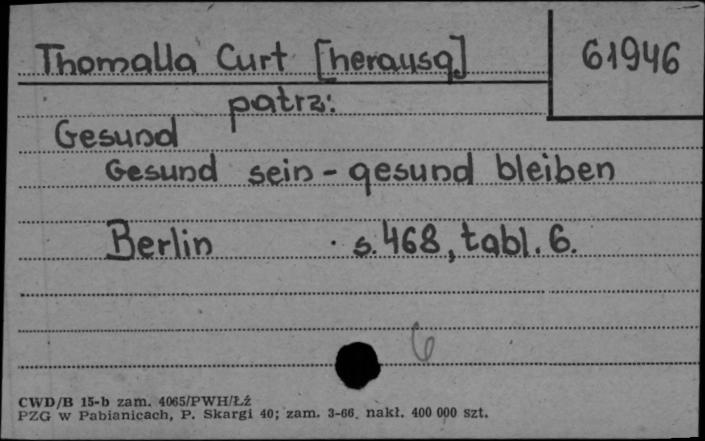 Thomalla Curt [herausg] 61946
patrz:
Gesund
Gesund sein - gesund bleiben
Berlin s. 468, tabl. 6.
6
CWD/B 15-b zam. 4065/PWH/Łź
PZG w Pabianicach, P. Skargi 40; zam. 3-66. nakł. 400 000 szt.